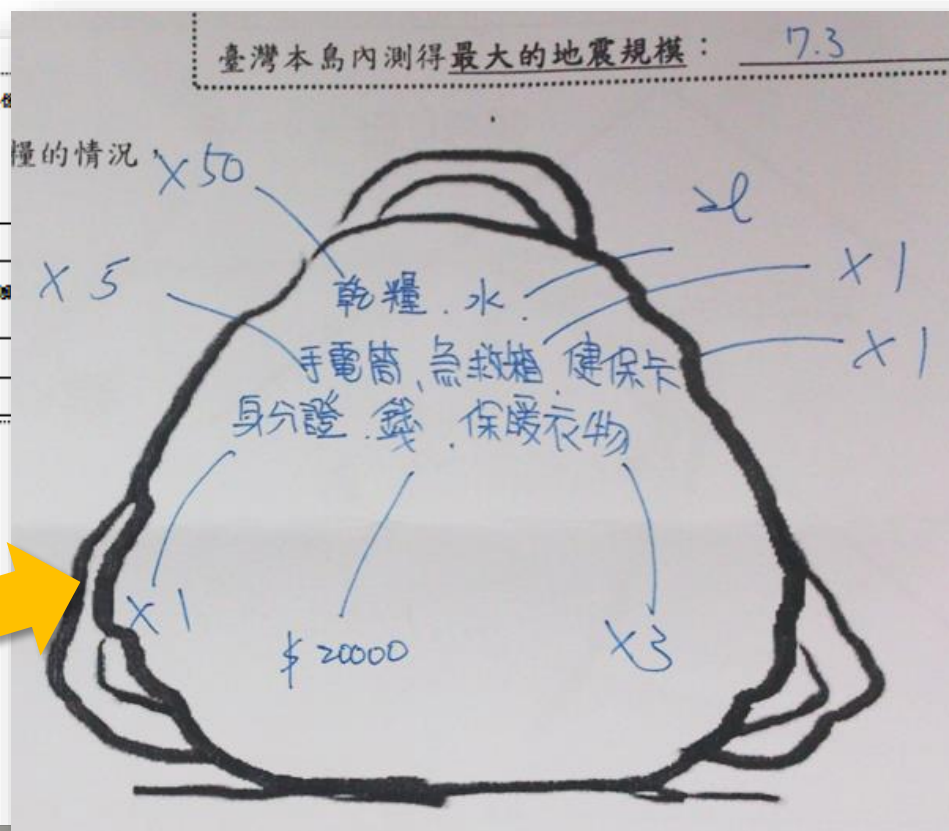 臺灣本島內測得最大的地震規模： 7.3
糧的情況，
X 50
2l
X 5
X 1
乾糧. 水.
X 1
手電筒, 急救箱, 健保卡
身分證. 錢. 保暖衣物
X 1
$ 20000
X3